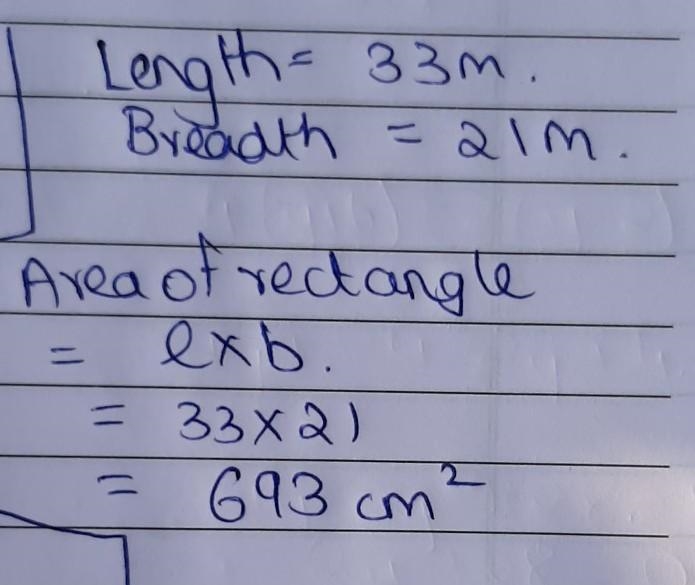 Length = 33m.
Breadth = 21m.
Area of rectangle
= l×b.
= 33×21
= 693 cm²